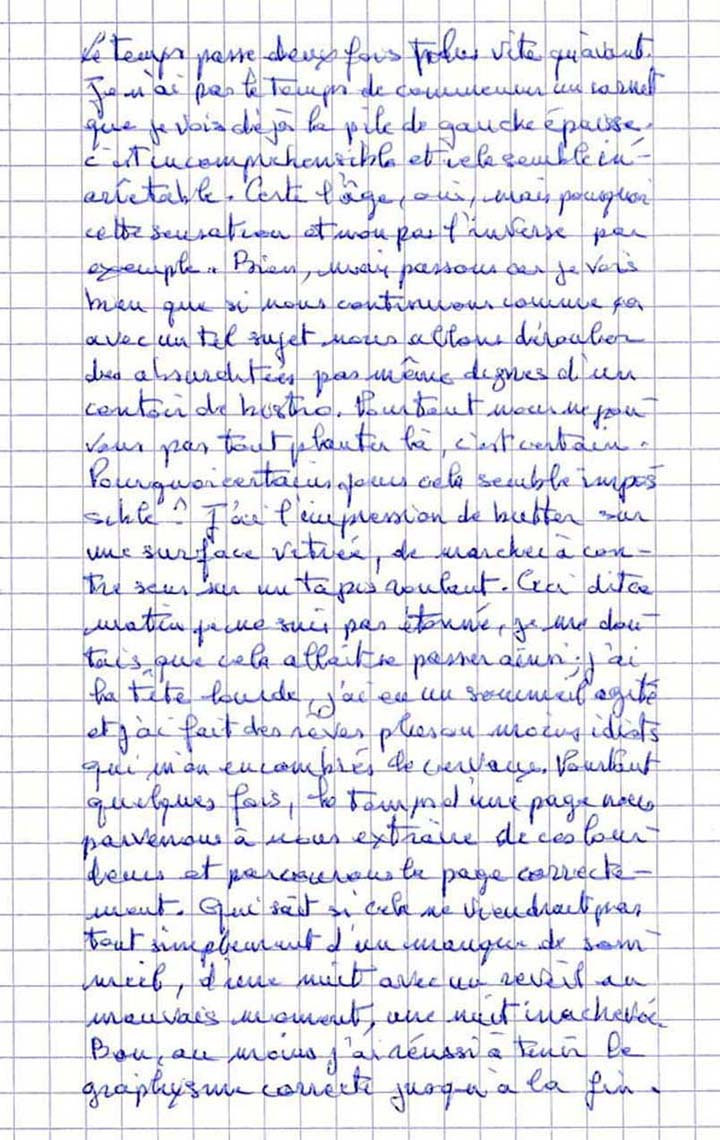 Le temps passe deux fois plus vite qu'avant.
Je n'ai pas le temps de commencer un carnet
que je vois déjà la pile de gauche épaisse.
c'est incompréhensible et cela semble in-
arrêtable. Certe l'âge, oui, mais pourquoi
cette sensation et non pas l'inverse par
exemple. Bien, mais passons car je vois
bien que si nous continuons comme ça
avec un tel sujet nous allons dérouler
des absurditées pas même dignes d'un
contoir de bistro. Pourtant nous ne pou-
vons pas tout planter là, c'est certain.
Pourquoi certains jours cela semble impos
sible ? J'ai l'impression de butter sur
une surface vitrée, de marcher à con-
tre sens sur un tapis roulant. Ceci dit ce
matin je ne suis pas étonné, je me dou-
tais que cela allait se passer ainsi ; j'ai
la tête lourde, j'ai eu un sommeil agité
et j'ai fait des rêves plus ou moins idiots
qui m'on encombrés le cerveau. Pourtant
quelques fois, le temps d'une page nous
parvenons à nous extraire de ces lour-
deurs et parcourons la page correcte-
ment. Qui sait si cela ne viendrait pas
tout simplement d'un manque de som-
meil, d'une nuit avec un reveil au
mauvais moment, une nuit inachevée.
Bon, au moins j'ai réussi à tenir le
graphysme correcte jusqu'à la fin.